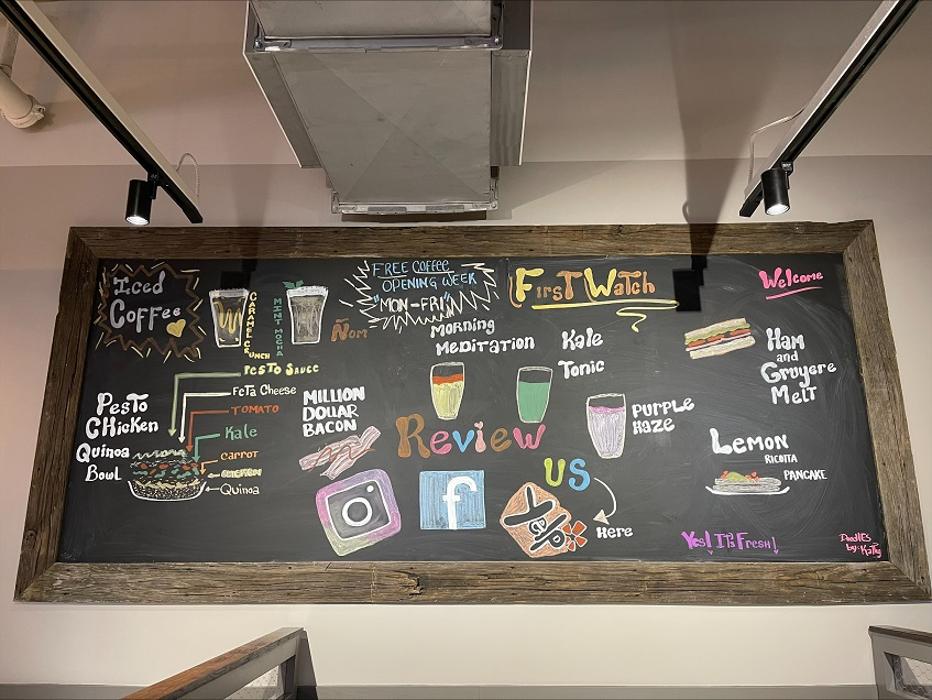 Iced
Coffee
CARAMEL CRUNCH
MINT MOCHA
Ñom
FREE COFFEE
OPENING WEEK
"MON-FRI"
FirsT WaTch
Welcome
Morning
MediTaTion
Kale
Tonic
PURPLE
HAZE
Ham
and
Gruyere
MelT
Lemon
RICOTTA
PANCAKE
PesTo
CHicKen
Quinoa
Bowl
PesTo Sauce
FeTa Cheese
TOMATO
Kale
carroT
Quinoa
MILLION
DOLLAR
BACON
Review
US
f
yelp
Here
Yes! IT's Fresh!
DoodlEs
by: KaTy